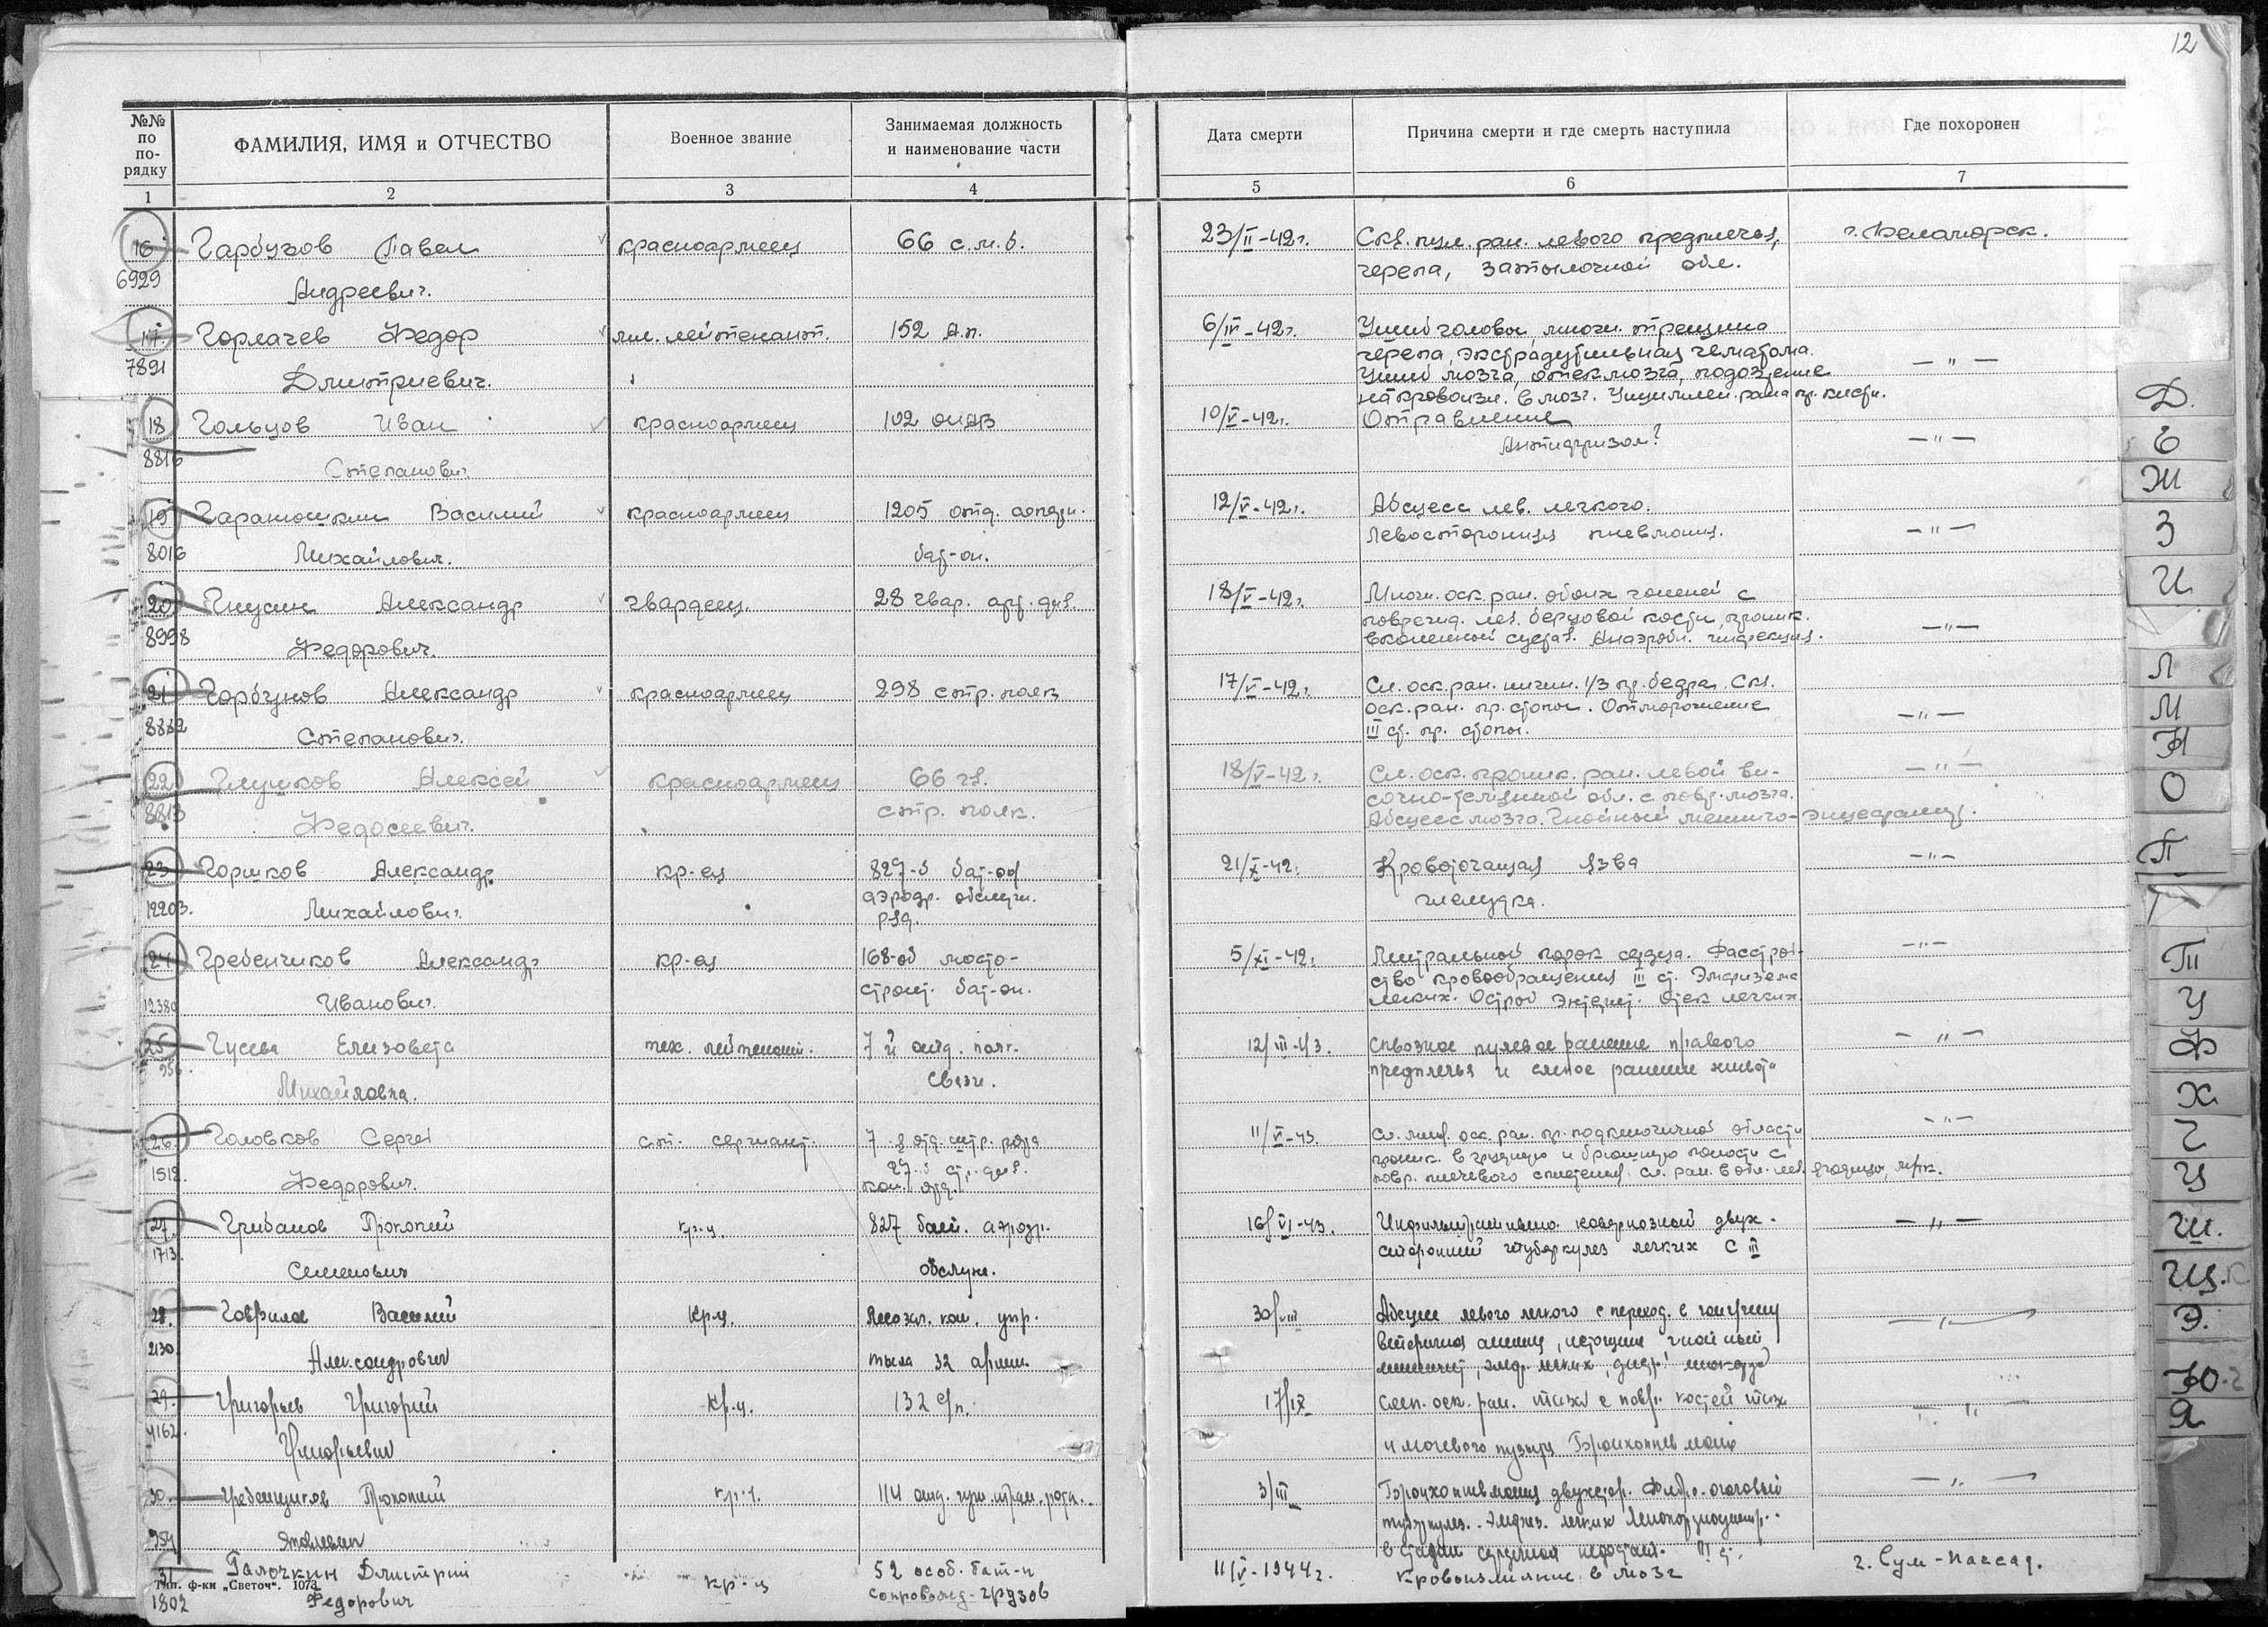 12
№№ по по- рядку
ФАМИЛИЯ, ИМЯ и ОТЧЕСТВО
Военное звание
Занимаемая должность
и наименование части
Дата смерти
Причина смерти и где смерть наступила
Где похоронен
1 2 3 4 5 6 7
16 Гарбузов Павел красноармеец 66 с.м.б. 23/II-42г. Скв. пул. ран. левого предплечья, г. Беломорск.
6929 Андреевич. черепа, затылочной обл.
17 Горлачев Федор мл. лейтенант. 152 А.п. 6/IV-42г. Ушиб головы, множ. трещина
7891 Дмитриевич. черепа, экстрадуральная гематома. — " —
Ушиб мозга, отек мозга, подозрение
на кровоизл. в мозг. Ущемлен. рана пр. кисти.
18 Гольцов Иван красноармеец 102 10/V-42г. Отравление
8816 Степанович. Антифризом? — " —
19 Гаранюшкин Василий красноармеец 1205 отд. саперн. 12/V-42г. Абсцесс лев. легкого.
8016 Михайлович. бат-он. Левосторонняя пневмония. — " —
20 Гнусин Александр гвардеец. 28 гвар. арт. див. 18/V-42г. Множ. оск. ран. обоих голеней с
8998 Федорович. поврежд. лев. берцовой кости, проник.
в коленный сустав. Анаэробн. инфекция. — " —
21 Горбунов Александр красноармеец 298 стр. полк 17/V-42г. Сл. оск. ран. нижн. 1/3 пр. бедра. Скв.
8882 Степанович. оск. ран. пр. стопы. Отморожение — " —
III ст. пр. стопы.
22 Глушков Алексей красноармеец 66 гв. 18/V-42г. Сл. оск. проник. ран. левой ви- — " —
8813 Федосеевич. стр. полк. сочно-теменной обл. с повр. мозга.
Абсцесс мозга. Гнойный менинго-энцефалит.
23 Горшков Александр кр-ец 827-й бат-он 21/X-42. Кровоточащая язва — " —
12203. Михайлович. аэродр. обслуж. желудка.
24 Гребенчиков Александр кр-ец 168-ой мосто- 5/XI-42г. Митральный порок сердца. Расстрой- — " —
12380 Иванович. строит. бат-он. ство кровообращения III ст. Эмфизема
легких. Острой Отек легких
25 Гусева Елизавета тех. лейтенант. 7 й отд. полк. 12/III-43. Сквозное пулевое ранение правого — " —
956. Михайловна. связи. предплечья и слепое ранение живота
26. Головков Сергей ст. сержант. 7-я отд. штр. рота 11/VI-43. Сл. оск. ран. пр. подключичной области — " —
1512. Федорович. 27-й стр. див. проник. в грудную и брюшную полости с
повр. плечевого сплетения. Сл. ран. в обл. лев. ягодицы,
27. Грибанов Прокопий кр-ц. 827 бат. аэродр. 16/VI-43. Инфильтративно кавернозный двух- — " —
1713. Семенович обслуж. сторонний туберкулез легких С III
28. Гаврилов Василий Кр-ц. хоз. ком. упр. 30/VIII Абсцесс левого легкого с переход. в гангрену — " —
2130 Александрович тыла 32 армии. Вторичная анемия, гнойный
29. Григорьев Григорий Кр-ц. 132 с/п. 17/IX Слеп. оск. ран. таза с повр. костей таза — " —
4162. Григорьевич и мочевого пузыря Бронхопневмония
30. Гребенщиков Прокопий кр-ц. 114 отд. гуж. тран. рота. 3/III Бронхопневмония двухстор. Фибр. очаговый — " —
954 Яковлевич туберкулез. Эмфиз. легких
в стадии сердечной недостат. III ст.
31 Галочкин Дмитрий кр-ц 52 особ. бат-н 11/V-1944г. Кровоизлияние в мозг г. Сум-Пассад.
Тип. ф-ки „Светоч“. 1073
1802 Федорович сопровожд. грузов
Д.
Е
Ж
З
И
Л
М
Н
О
П
Т
У
Ф
Х
Ч
Ц
Ш.
Щ.
Э.
Ю
Я